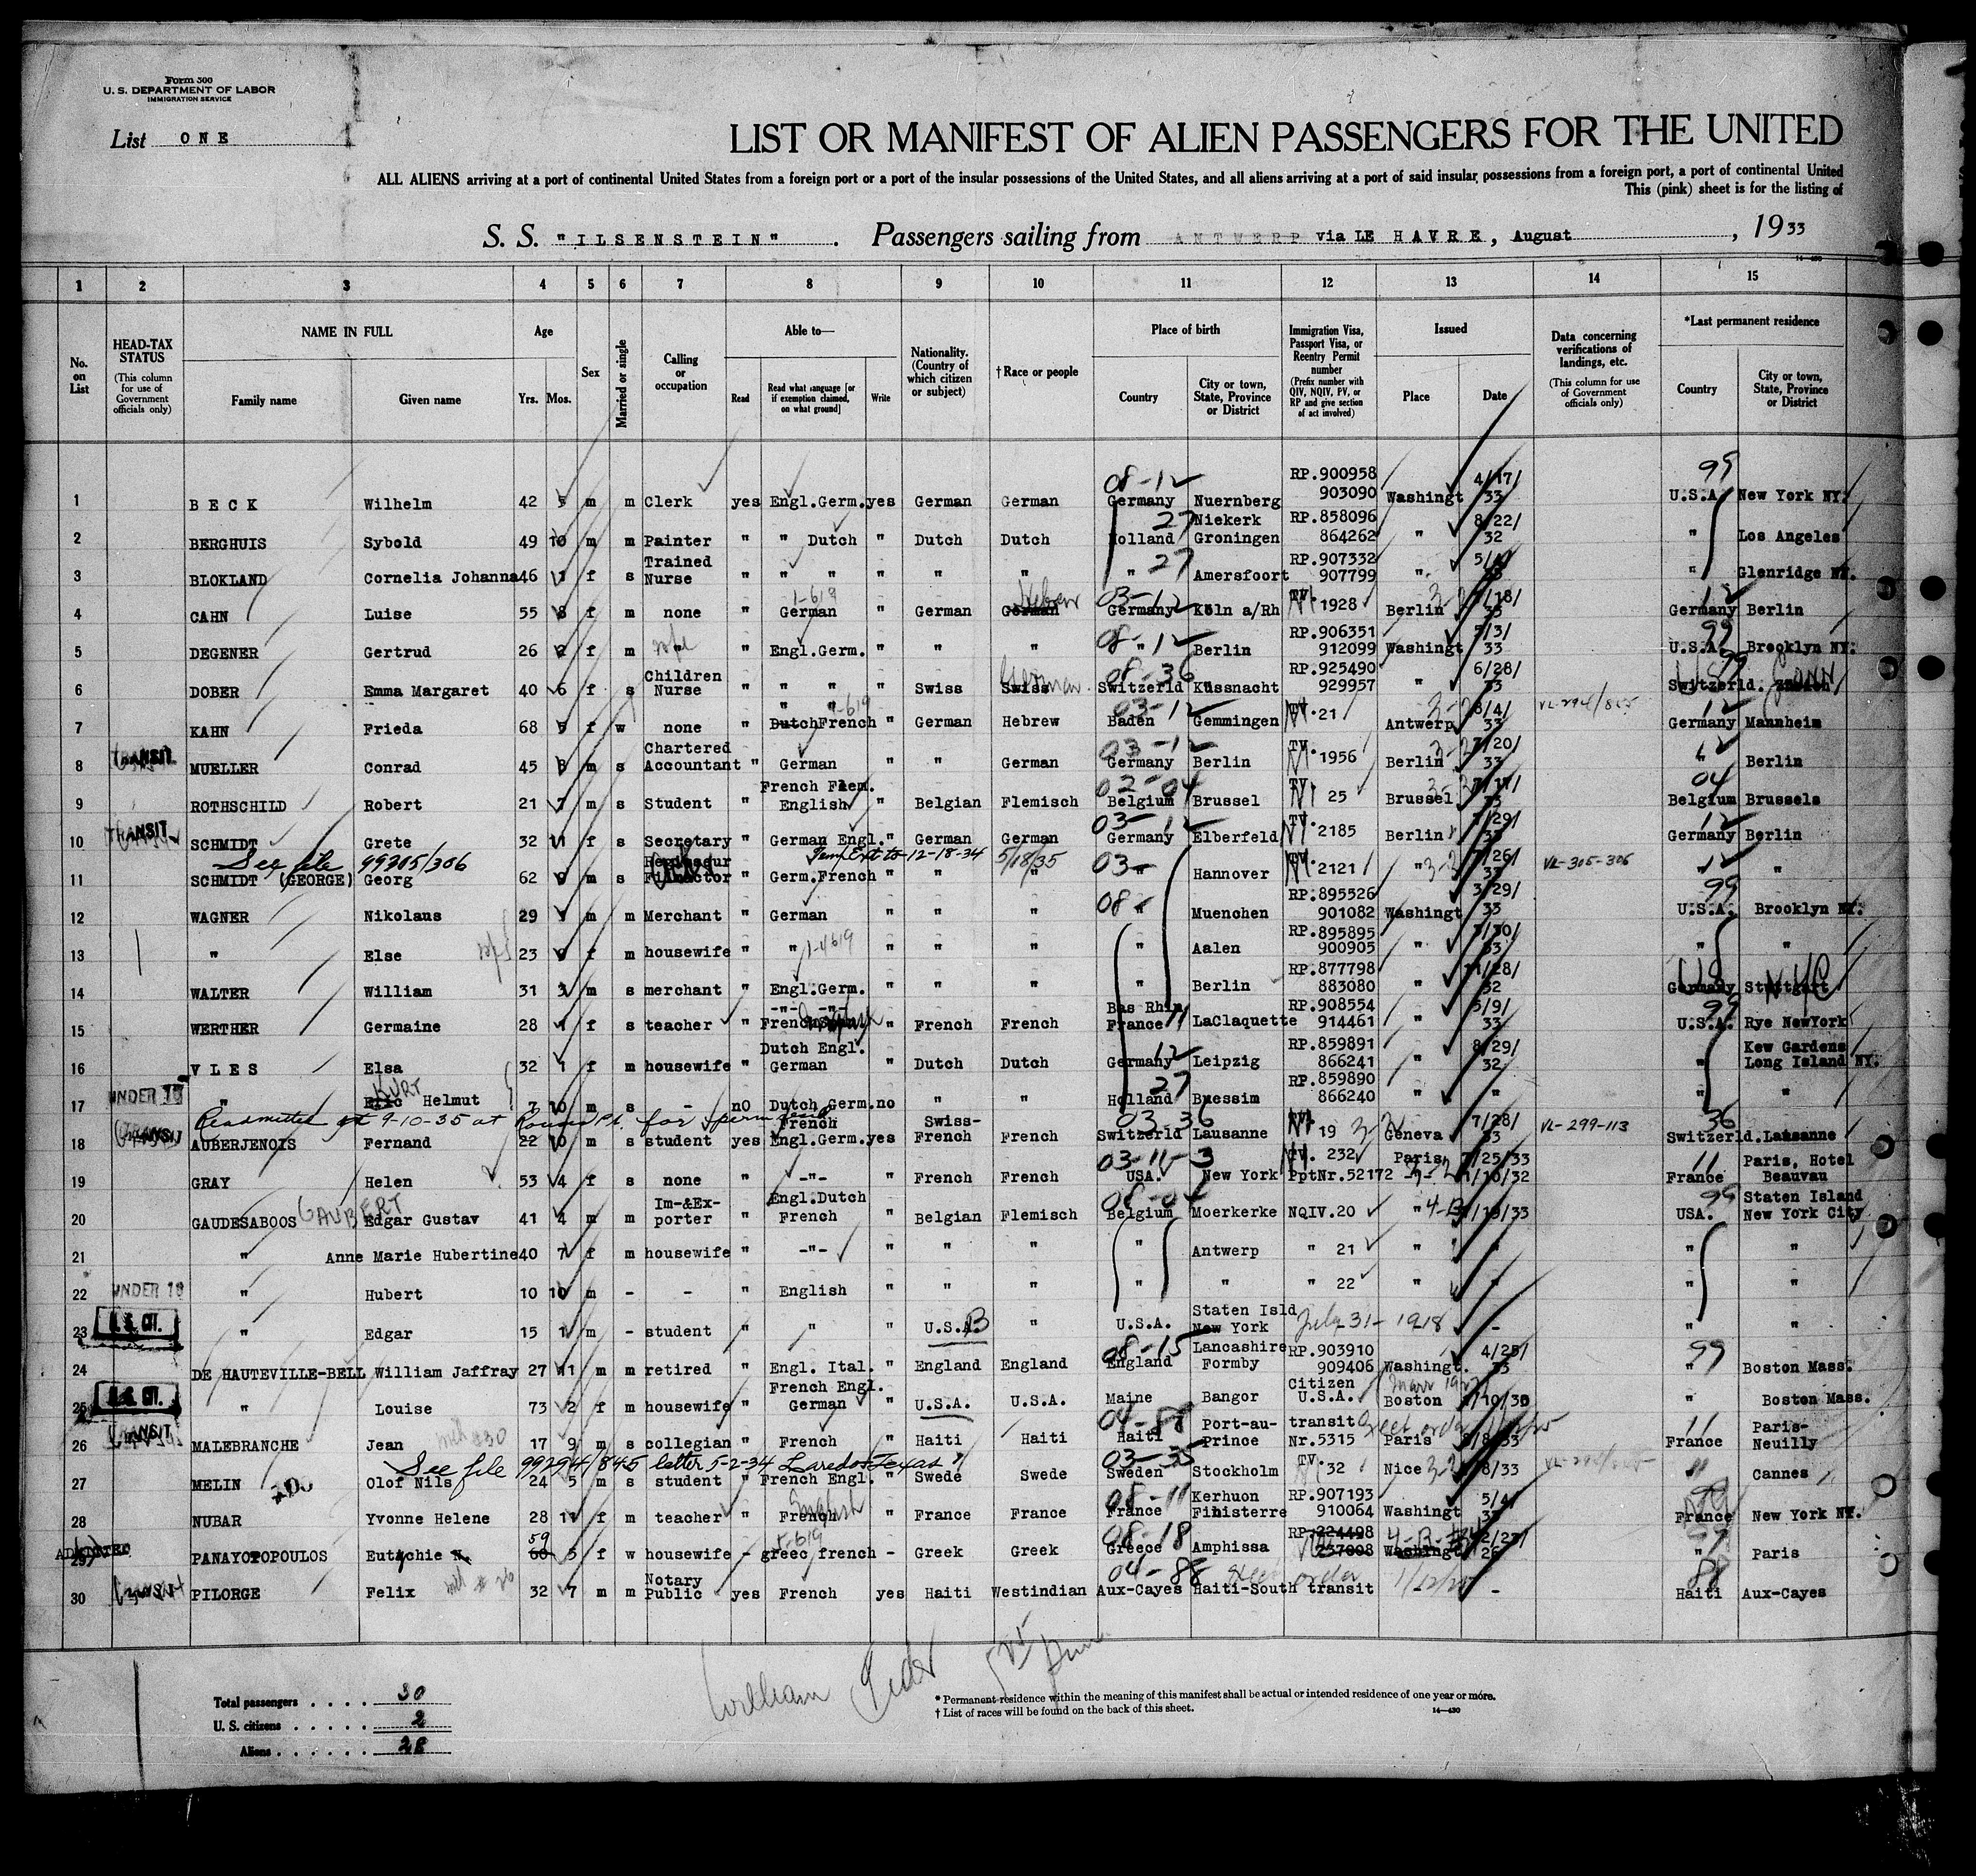 Form 500
U. S. DEPARTMENT OF LABOR
IMMIGRATION SERVICE
List ONE
LIST OR MANIFEST OF ALIEN PASSENGERS FOR THE UNITED
ALL ALIENS arriving at a port of continental United States from a foreign port or a port of the insular possessions of the United States, and all aliens arriving at a port of said insular possessions from a foreign port, a port of continental United
This (pink) sheet is for the listing of
S. S. "ILSENSTEIN" . Passengers sailing from ANTWERP via LE HAVRE, August , 1933
14-430
1 2 3 4 5 6 7 8 9 10 11 12 13 14 15
No. on List
HEAD-TAX STATUS (This column for use of Government officials only)
NAME IN FULL Family name Given name
Age Yrs. Mos.
Sex
Married or single
Calling or occupation
Able to— Read Read what language [or if exemption claimed, on what ground] Write
Nationality. (Country of which citizen or subject)
†Race or people
Place of birth Country City or town, State, Province or District
Immigration Visa, Passport Visa, or Reentry Permit number (Prefix number with QIV, NQIV, PV, or RP and give section of act involved)
Issued Place Date
Data concerning verifications of landings, etc. (This column for use of Government officials only)
*Last permanent residence Country City or town, State, Province or District
08-12 RP.900958 4/17/ 99
1 BECK Wilhelm 42 5 m m Clerk yes Engl.Germ. yes German German Germany Nuernberg 903090 Washingt 33 U.S.A. New York NY.
27 Niekerk RP.858096 8/22/
2 BERGHUIS Sybold 49 10 m m Painter " " Dutch " Dutch Dutch Holland Groningen 864262 " 32 " Los Angeles
Trained 27 RP.907332 5/4/
3 BLOKLAND Cornelia Johanna 46 1 f s Nurse " " " " " " " Amersfoort 907799 " 33 " Glenridge NY.
1-619 Hebrew 03-12 TV. 7/18/ 12
4 CAHN Luise 55 8 f m none " German " German German Germany Köln a/Rh 1928 Berlin 33 Germany Berlin
08-12 RP.906351 5/3/ 99
5 DEGENER Gertrud 26 2 f m " Engl.Germ. " " " " Berlin 912099 Washingt 33 U.S.A. Brooklyn NY.
Children German 08-36 RP.925490 6/28/ USA Conn
6 DOBER Emma Margaret 40 6 f s Nurse " " " " Swiss Swiss Switzerld Küssnacht 929957 " 33 Switzerld.
" " 1-619 03-12 TV. 8/4/ 12
7 KAHN Frieda 68 5 f w none " Dutch French " German Hebrew Baden Gemmingen 21 Antwerp 33 Germany Mannheim
TRANSIT Chartered 03-12 TV. 3-2 7/20/ 12
8 MUELLER Conrad 45 8 m s Accountant " German " " German Germany Berlin 1956 Berlin 33 Berlin
French Flem. 02-04 TV. 7/17/ 04
9 ROTHSCHILD Robert 21 7 m s Student " English " Belgian Flemisch Belgium Brussel 25 Brussel 33 Belgium Brussels
TRANSIT 03-12 TV. 7/29/ 12
10 SCHMIDT Grete 32 11 f s Secretary " German Engl. " German German Germany Elberfeld 2185 Berlin 33 Germany Berlin
See file 99305/306 Temp Ext to 12-18-34 5/18/35 03- TV. 7/26/ 12
11 SCHMIDT (GEORGE) Georg 62 9 m s " Germ.French " " " " Hannover 2121 " 3-2 33 VL-305-306 " "
08- RP.895526 3/29/ 99
12 WAGNER Nikolaus 29 m m Merchant " German " " " " Muenchen 901082 Washingt 33 U.S.A. Brooklyn NY.
1-619 RP.895895 3/30/
13 " Else 23 9 f m housewife " " " " " " Aalen 900905 " 33 " "
RP.877798 11/28/ US NYC
14 WALTER William 31 3 m s merchant " Engl.Germ. " " " " Berlin 883080 " 32 Germany Stuttgart
-"- -"- Bas Rhin RP.908554 5/9/ 99
15 WERTHER Germaine 28 1 f s teacher " French " French French France 11 LaClaquette 914461 " 33 U.S.A. Rye NewYork
Dutch Engl. 12 RP.859891 8/29/ Kew Gardens
16 VLES Elsa 32 1 f m housewife " German " Dutch Dutch Germany Leipzig 866241 " 32 " Long Island NY.
UNDER 16 KURT 27 RP.859890
17 " Eric Helmut 7 10 m s - no Dutch Germ. no " " Holland Bussim 866240 " " " "
Readmitted 9-10-35 at Rouses Pt. for perm
TRANSIT French Swiss- 03-36 7/28/ 36
18 AUBERJENOIS Fernand 22 10 m s student yes Engl.Germ. yes French French Switzerld Lausanne 19 Geneva 33 VL-299-113 Switzerld. Lausanne
03-11-3 TV. 232 Paris 7/25/33 11 Paris, Hotel
19 GRAY Helen 53 4 f s none " -"- " French French USA. New York PptNr.52172 1/10/32 France Beauvau
GAUBERT Im-&Ex- Engl.Dutch 08-04 99 Staten Island
20 GAUDESABOOS Edgar Gustav 41 4 m m porter " French " Belgian Flemisch Belgium Moerkerke NQIV.20 " 4-B /18/33 USA. New York City
21 " Anne Marie Hubertine 40 7 f m housewife " -"- " " " " Antwerp " 21 " " " "
22 UNDER 16 " Hubert 10 10 m - - " English " " " " " " 22 " " " "
U. S. CIT. Staten Isld
23 " Edgar 15 1 m - student " " " U.S.A. B " U.S.A. New York July 31-1918 - " "
08-15 Lancashire RP.903910 4/25/ 99
24 DE HAUTEVILLE-BELL William Jaffray 27 11 m m retired " Engl. Ital. " England England England Formby 909406 Washingt. 33 " Boston Mass.
U. S. CIT. French Engl. Citizen
25 " Louise 73 2 f m housewife " German " U.S.A. U.S.A. Maine Bangor U.S.A. Boston 1/10/30 " Boston Mass.
TRANSIT 04-88 Port-au- transit 11 Paris-
26 MALEBRANCHE Jean 17 9 m s collegian " French " Haiti Haiti Haiti Prince Nr.5315 Paris 8/8/33 France Neuilly
See file 99294/845 letter 5-2-34 Laredo Texas 03-35 TV.
27 MELIN Olof Nils 24 5 m s student " French Engl. " Swede Swede Sweden Stockholm 32 Nice 8/33 " Cannes
English 08-11 Kerhuon RP.907193 5/4/
28 NUBAR Yvonne Helene 28 11 f m teacher " French " France France France Finisterre 910064 Washingt 33 France New York NY.
ADMITTED 59 1-619 08-18 RP.224498 2/27/
29 PANAYOTOPOULOS Eutychie N. 60 5 f w housewife - greec french - Greek Greek Greece Amphissa 237008 Washingt 26 " Paris
TRANSIT Notary 04-88 88
30 PILORGE Felix 32 7 m m Public yes French yes Haiti Westindian Aux-Cayes Haiti-South transit - Haiti Aux-Cayes
William
Total passengers . . . . 30
U. S. citizens . . . . . 2
Aliens . . . . . . 28
* Permanent residence within the meaning of this manifest shall be actual or intended residence of one year or more.
† List of races will be found on the back of this sheet.
14—430